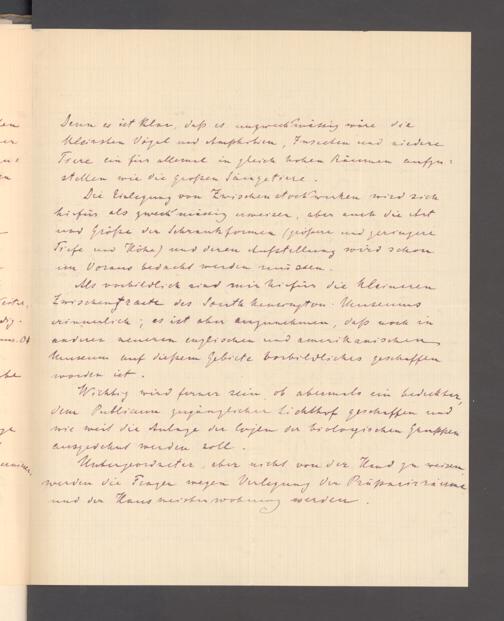 Denn es ist klar, daß es unzweckmässig wäre die
kleinsten Vögel und Amphibien, Insecten und niedere
Tiere ein für allemal in gleich hohen Räumen aufzu-
stellen wie die großen Säugetiere.
Die Einlegung von Zwischenstockwerken wird sich
hiefür als zweckmässig erweisen, aber auch die Art
und Größe der Schrankformen (größere und geringere
Tiefe und Höhe) und deren Aufstellung wird schon
im Voraus bedacht werden müssen.
Als vorbildlich sind mir hiefür die kleineren
Zwischentracte des South Kensington-Museums
erinnerlich; es ist aber anzunehmen, daß noch in
anderen neueren englischen und amerikanischen
Museum auf diesem Gebiete Vorbildliches geschaffen
worden ist.
Wichtig wird ferner sein, ob abermals ein bedeckter,
dem Publicum zugänglicher Lichthof geschaffen und
wie weit die Anlage der Cojen der biologischen Gruppen
ausgedehnt werden soll.
Untergeordneter, aber nicht von der Hand zu weisen
werden die Fragen wegen Verlegung der Präparierräume
und der Hausmeisterwohnung werden.